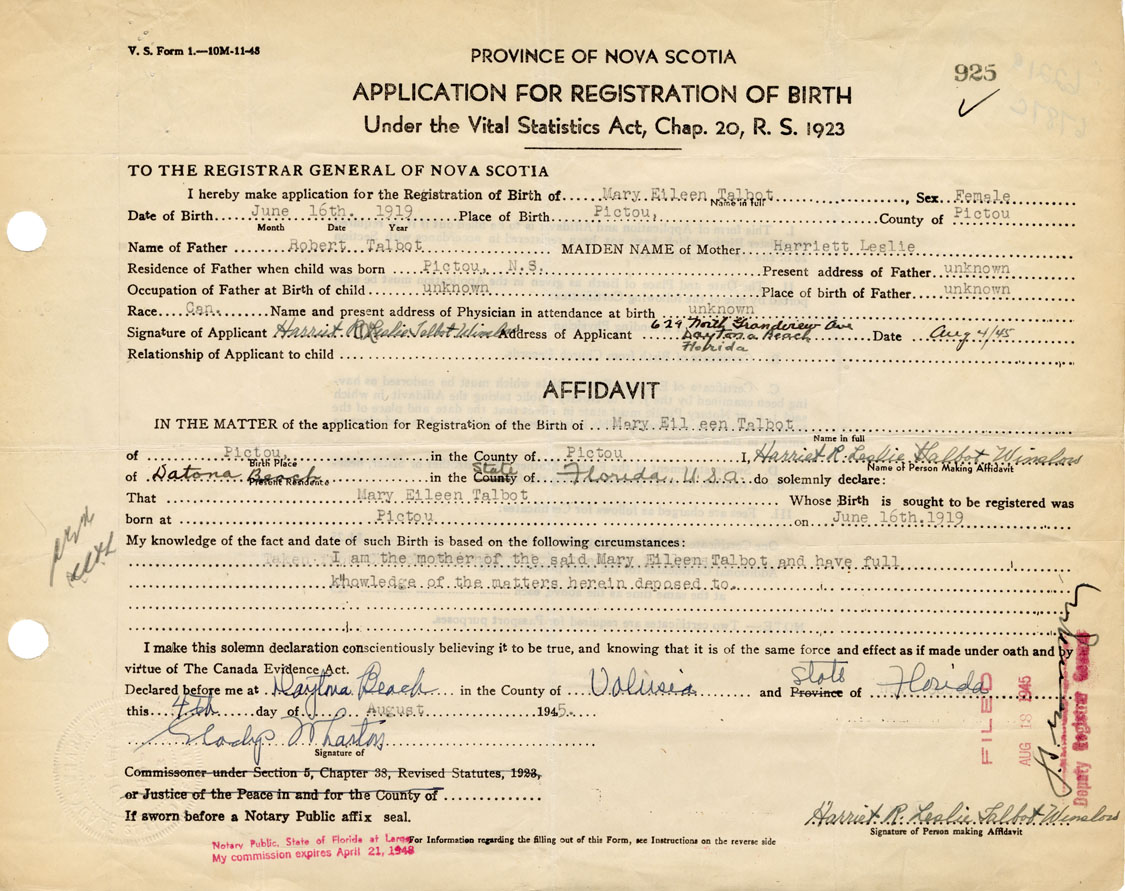 V. S. Form 1.—10M-11-43
PROVINCE OF NOVA SCOTIA
925
APPLICATION FOR REGISTRATION OF BIRTH
Under the Vital Statistics Act, Chap. 20, R. S. 1923
TO THE REGISTRAR GENERAL OF NOVA SCOTIA
I hereby make application for the Registration of Birth of Mary Eileen Talbot, Sex Female
Name in full
Date of Birth June 16th. 1919 Place of Birth Pictou, County of Pictou
Month Date Year
Name of Father Robert Talbot MAIDEN NAME of Mother Harriett Leslie
Residence of Father when child was born Pictou, N.S. Present address of Father unknown
Occupation of Father at Birth of child unknown Place of birth of Father unknown
Race Can. Name and present address of Physician in attendance at birth unknown
Signature of Applicant Harriet R Leslie Talbot Winslow Address of Applicant 629 North Grandview Ave Daytona Beach Florida Date Aug 4/45
Relationship of Applicant to child
AFFIDAVIT
IN THE MATTER of the application for Registration of the Birth of Mary Eil een Talbot
Name in full
of Pictou, in the County of Pictou I, Harriet R. Leslie Talbot Winslow
Birth Place Name of Person Making Affidavit
of Datona Beach in the County State of Florida, U.S.A. do solemnly declare:
Present Residence
That Mary Eileen Talbot Whose Birth is sought to be registered was
born at Pictou on June 16th.1919
My knowledge of the fact and date of such Birth is based on the following circumstances:
I am the mother of the said Mary Eileen Talbot and have full
knowledge of the matters herein deposed to.
I make this solemn declaration conscientiously believing it to be true, and knowing that it is of the same force and effect as if made under oath and by
virtue of The Canada Evidence Act.
Declared before me at Daytona Beach in the County of Volusia and Province State of Florida
this 4th day of August 1945.
Gladys Wharton
Signature of
Commissoner under Section 5, Chapter 38, Revised Statutes, 1923,
or Justice of the Peace in and for the County of
If sworn before a Notary Public affix seal.
Harriet R. Leslie Talbot Winslow
Signature of Person making Affidavit
Notary Public, State of Florida at Large
My commission expires April 21, 1948
For Information regarding the filling out of this Form, see Instructions on the reverse side
FILED
AUG 13 1945
Deputy Registrar General